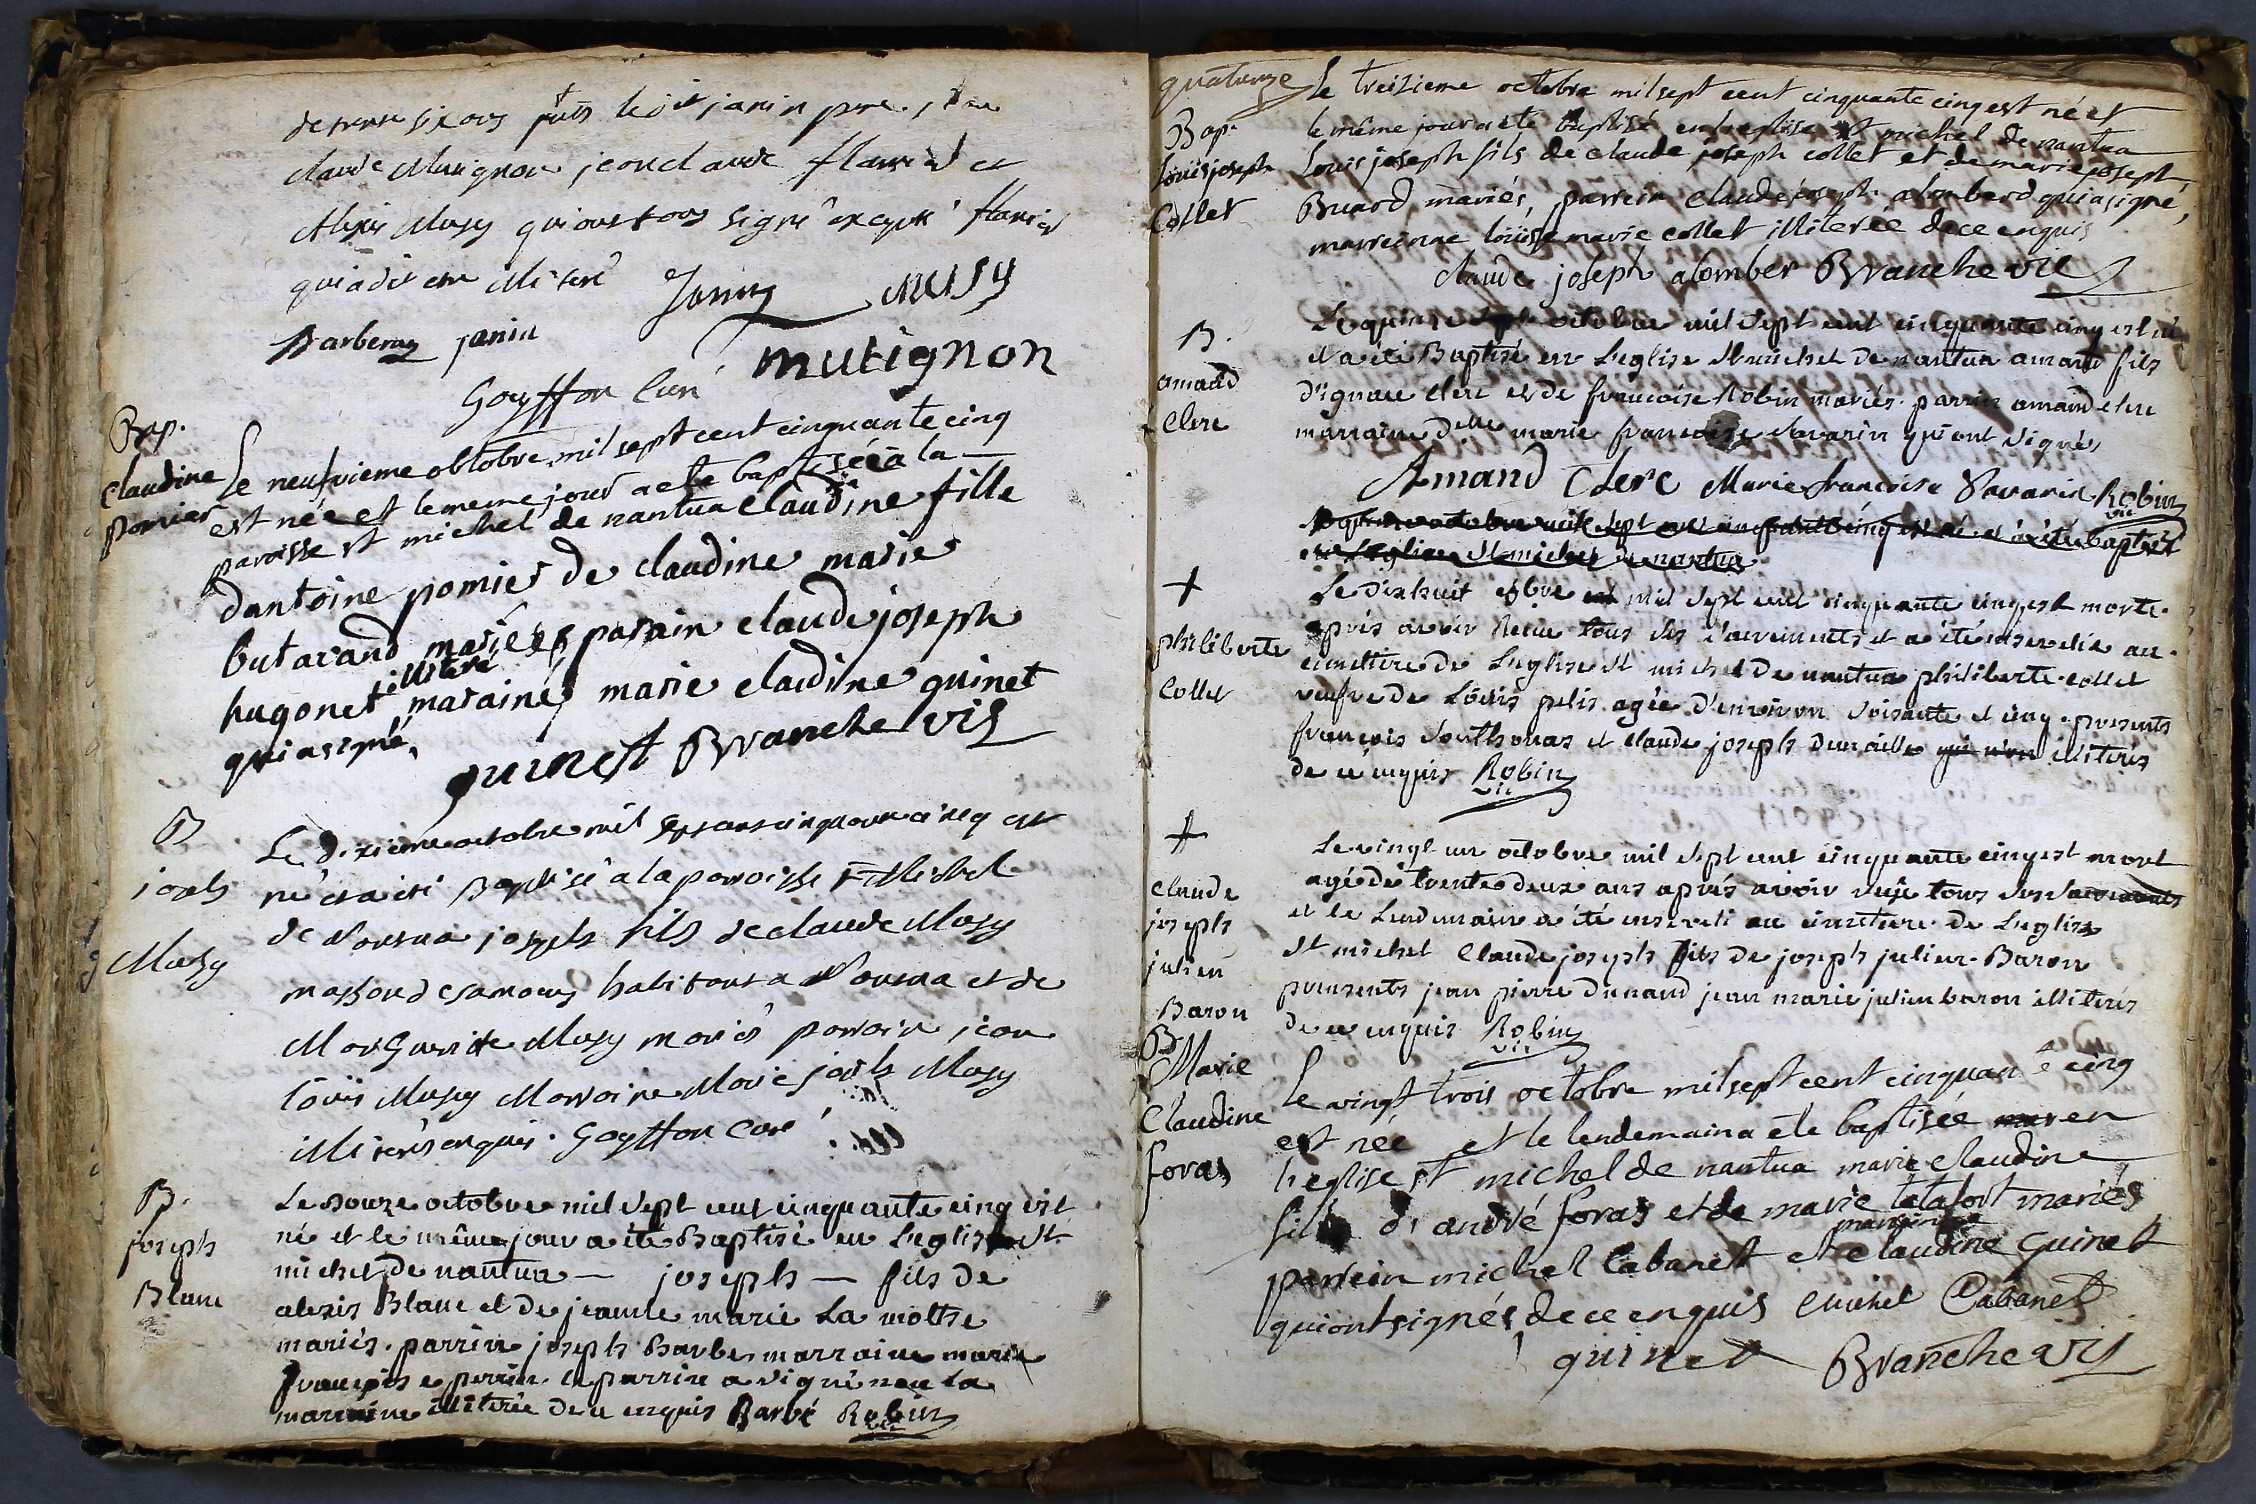 de trente six ans puts led it janin pere, 
claude Mutignon jean claude flamier et
Alexis Musy qui ont tous signé excepté flamier
qui a dit etre illiteré Janin Musy
Barberay janin
mutignon
Goyffon Curé
Bap.
Claudine
pomier
Le neufvieme obtobre mil sept cent cinquante cinq
est née et le meme jour a ete baptisée a la
paroisse st michel de nantua claudine fille
dantoine pomier de claudine marie
butavand mariés parain claude joseph
hugonet illiteré maraine marie claudine guinet
qui a signé,
guinet Branche vic
B
joseph
Musy
Le dixieme octobre mil sept cens cinquante cinq est
né et a eté Baptisé a la paroisse St Michel
de Nantua joseph fils de claude Musy
habitant a Nantua et de
Marguerite Musy mariés parrain jean
Loüis Musy Marraine Marie joseph Musy
illiterés enquis. Goyffon Curé
B.
joseph
Blanc
Le douze octobre mil sept cent cinquante cinq est
né et le même jour a été Baptisé en l'eglise St
michel de nantua — joseph — fils de
alexis Blanc et de jeanne marie La mothe
mariés. parrin joseph Barbe marraine marie
françoise perrin le parrin a signé non la
marraine illiterée de ce enquis Barbé Robin
vic
quatorze
Bap.
Loüis joseph
Collet
Le treizieme octobre mil sept cent cinquante cinq est né et
le même jour a eté baptisé en l'eglise st michel de nantua
Louis joseph fils de claude joseph collet et de marie joseph
Buard mariés, parrein claude joseph alombard qui a signé,
marreinne loüise marie collet illiterée de ce enquis
claude joseph alomber Branche vic
B.
amand
Clerc
Le quinze octobre mil sept cent cinquante cinq est né
et a été Baptisé en L'eglise St michel de nantua amand fils
d'ignace clerc et de francoise Robin mariés. parrin amand clerc
marraine Dlle marie francoise Savarin qui ont signés
Amand Clerc Marie francoise Savarin Robin
vic
Le quinze octobre mil sept cent cinquante cinq est né et a été baptisé
en L'eglise St michel de nantua
+
philiberte
Collet
Le dix huit 8bre mil sept cent cinquante cinq est morte
apres avoir Reçue tous ses sacrements et a été ensevelie au
cimetiere de L'eglise st michel de nantua philiberte collet
veufve de Loüis pelis agée d'environ soisante et cinq presents
francois Southonas et claude joseph Dunaille illiterés
de ce enquis Robin
vic
+
claude
joseph
julien
Baron
Le vingt un octobre mil sept cent cinquante cinq est mort
agé de trente deux ans aprés avoir reçu tous ses sacrements
et le Lendemain a été enseveli au cimetiere de L'eglise
St michel Claude joseph fils de joseph julien Baron
presents jean pierre Dunand jean marie julien baron illiterés
de ce enquis Robin
vic
B
Marie
Claudine
foras
Le vingt trois octobre mil sept cent cinquante cinq
est née et le lendemain a ete baptisée en
l'eglise st michel de nantua marie claudine
fille d'andré foras et de marie tatafort mariés
parrein michel Cabanet et marreine claudine Guinet
qui ont signés, de ce enquis Michel Cabanet
guinet Branche vic